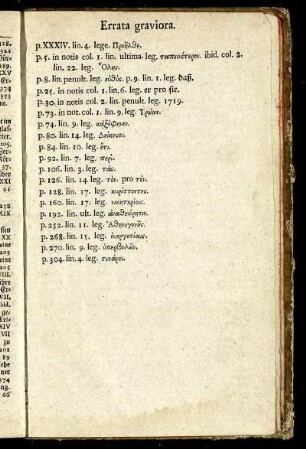 Errata graviora.
p.XXXIV. lin. 4. lege. Προῆλθεν.
p. 5. in notis col. 1. lin. ultima leg. ταπεινότερον. ibid. col. 2.
lin. 22. leg. Ὅλως.
p. 8. lin. penult. leg. εὐθύς. p. 9. lin. 1. leg. daß.
p. 25. in notis col. 1. lin. 6. leg. er pro sie.
p. 30. in notis col. 2. lin. penult. leg. 1719.
p. 73. in not. col. 1. lin. 9. leg.
p. 74. lin. 9. leg.
p. 80. lin. 14. leg.
p. 84. lin. 10. leg. ἔτι.
p. 92. lin. 7. leg. περί.
p. 106. lin. 3. leg. τάς.
p. 126. lin. 14. leg. τὲν. pro τέν.
p. 128. lin. 17. leg. κηρύττοντες.
p. 160. lin. 17. leg.
p. 192. lin. ult. leg.
p. 252. lin. 11. leg.
p. 268. lin. 15. leg.
p. 270. lin. 9. leg. ὑπερβολῶν.
p. 304. lin. 4. leg.